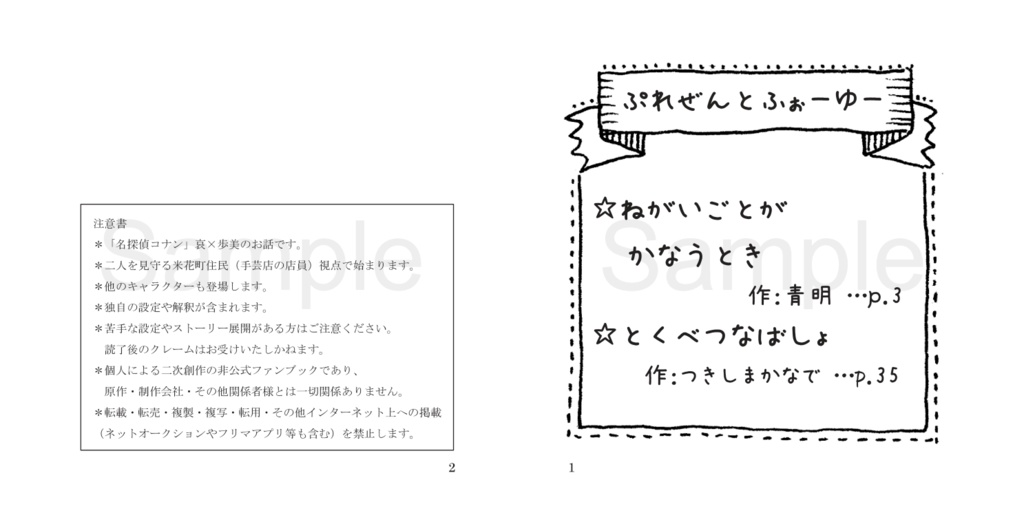 ぷれぜんとふぉーゆー
☆ねがいごとが
かなうとき
作:青明 …p.3
☆とくべつなばしょ
作:つきしまかなで …p.35
Sample
1
注意書
＊「名探偵コナン」哀×歩美のお話です。
＊二人を見守る米花町住民（手芸店の店員）視点で始まります。
＊他のキャラクターも登場します。
＊独自の設定や解釈が含まれます。
＊苦手な設定やストーリー展開がある方はご注意ください。
読了後のクレームはお受けいたしかねます。
＊個人による二次創作の非公式ファンブックであり、
原作・制作会社・その他関係者様とは一切関係ありません。
＊転載・転売・複製・複写・転用・その他インターネット上への掲載
（ネットオークションやフリマアプリ等も含む）を禁止します。
Sample
2